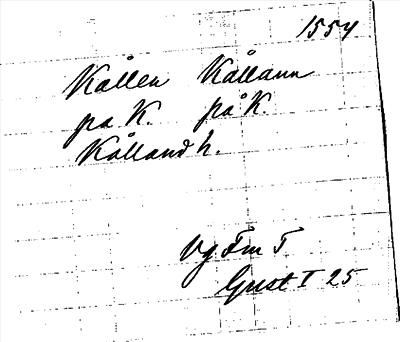 1554
Kållen Kållann
på K. på K.
Kålland h.
Vg Fm T
Gust I 25